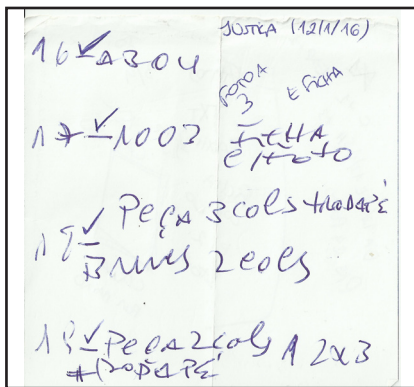 JUSTIÇA (12/1/16)
16 ✓ A304
FOTO A 3 E FICHA
17 ✓ 1003 FICHA
E/FOTO
18 ✓ PEÇA 3 cols + RODAPÉ
2 cols
19 ✓ PEÇA 2 cols 1 2x3
+ RODAPÉ